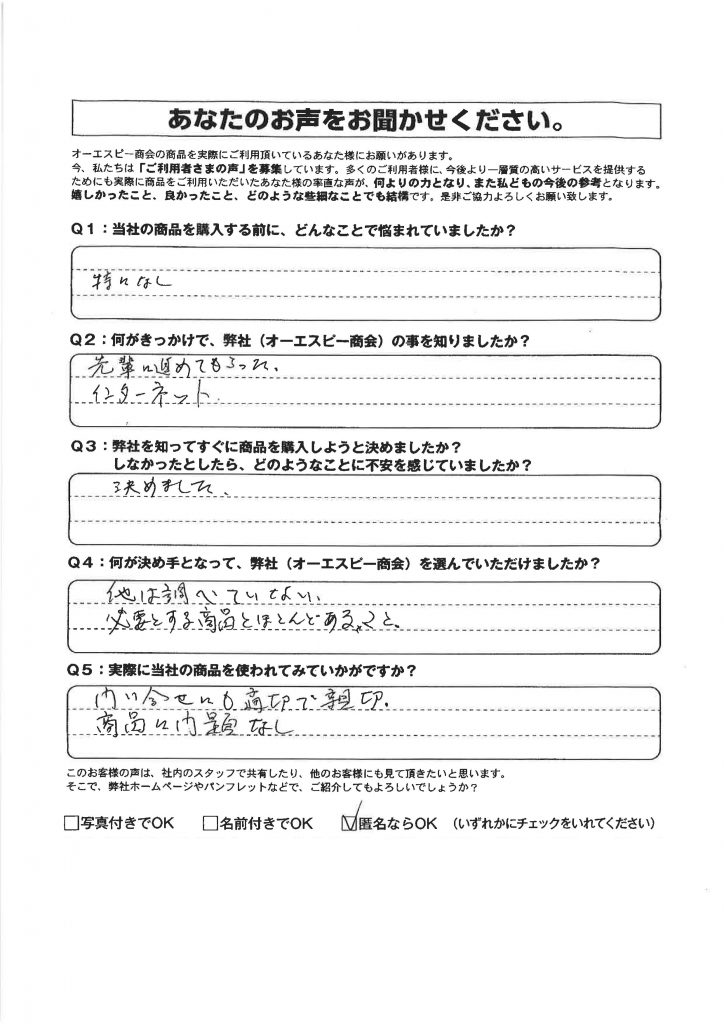 あなたのお声をお聞かせください。
オーエスピー商会の商品を実際にご利用頂いているあなた様にお願いがあります。
今、私たちは「ご利用者さまの声」を募集しています。多くのご利用者様に、今後より一層質の高いサービスを提供する
ためにも実際に商品をご利用いただいたあなた様の率直な声が、何よりの力となり、また私どもの今後の参考となります。
嬉しかったこと、良かったこと、どのような些細なことでも結構です。是非ご協力よろしくお願い致します。
Q1：当社の商品を購入する前に、どんなことで悩まれていましたか？
特になし
Q2：何がきっかけで、弊社（オーエスピー商会）の事を知りましたか？
先輩に進めてもらった。
インターネット
Q3：弊社を知ってすぐに商品を購入しようと決めましたか？
しなかったとしたら、どのようなことに不安を感じていましたか？
決めました。
Q4：何が決め手となって、弊社（オーエスピー商会）を選んでいただけましたか？
他は調べていない。
必要とする商品とほとんどあること。
Q5：実際に当社の商品を使われてみていかがですか？
問い合せにも適切で親切。
商品に問題なし
このお客様の声は、社内のスタッフで共有したり、他のお客様にも見て頂きたいと思います。
そこで、弊社ホームページやパンフレットなどで、ご紹介してもよろしいでしょうか？
□写真付きでOK □名前付きでOK ☑匿名ならOK （いずれかにチェックをいれてください）